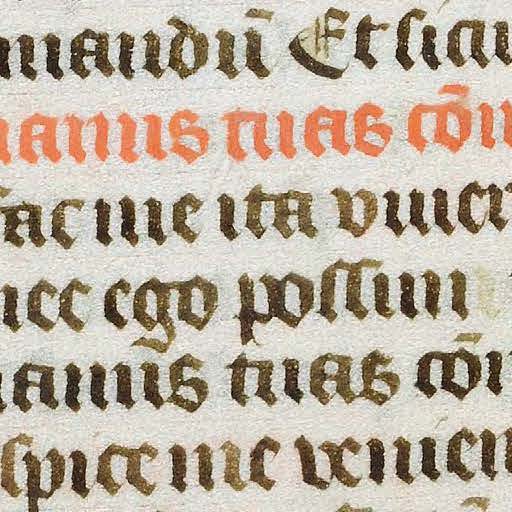 mandū Et sicu
manus tuas cōm
fac me ita viuer
nec ego possim
manus tuas cōm
spice me venien